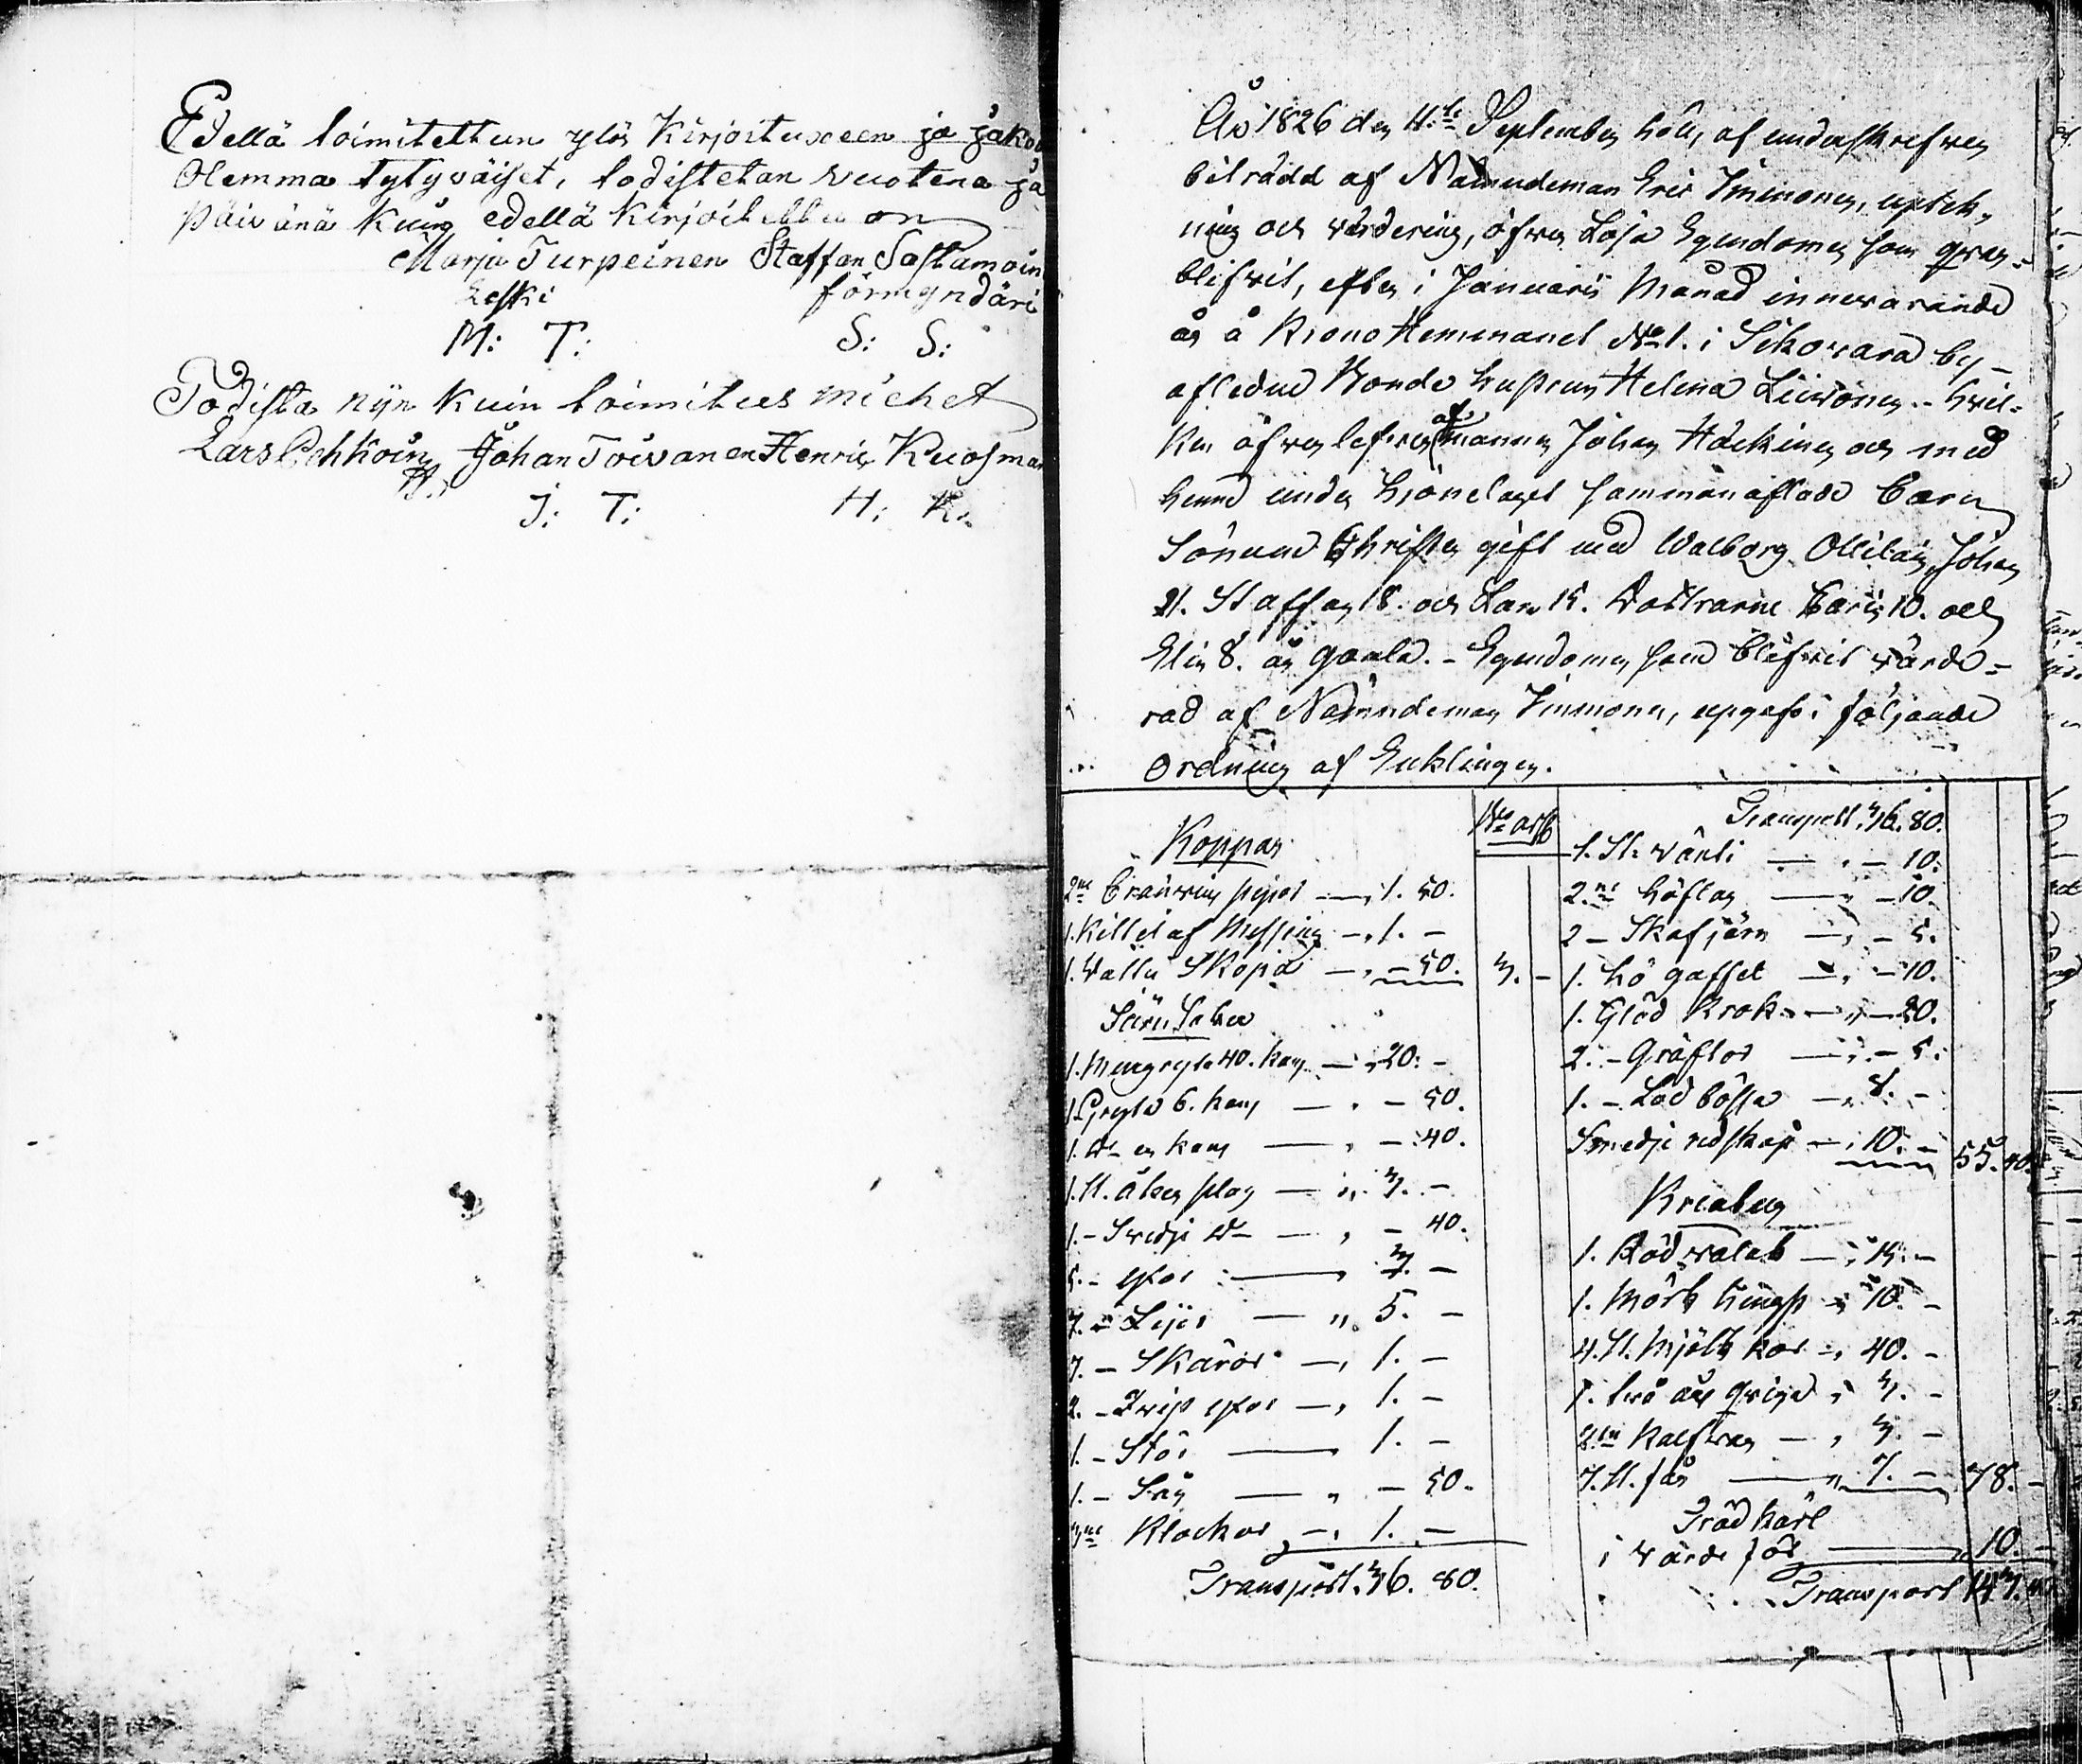 Edellä toimitettun ylös Kirjoituxeen ja jakoo
Olemma tytyväiset, todistetan vuotena ja
päivänä kuin edellä kirjoitettu on
Marja Turpeinen Staffan Sastamoin
Leski förmyndäri
M: T: S: S:
Todista nijn kuin toimitus miehet
Lars Pehkoin Johan Toivanen Henric Kuosman
J: T: H: K:
År 1826 den 11te September höls af underskrefven
biträdd af Nämndeman Eric Immonen, uptek-
ning och värdering, öfver Lösa Egendomen som qvar-
blifvit, efter i Januarii Månad innevarande
år å Krono Hemmanet No 1. i Sikovara by
aflednе Bonde hustrun Helena Liivonen.. hvil-
ken öfverlefves af mannen Johan Häckinen och med
henne under hjonelaget sammanaflade Barn
Sönerne Christer gift med Walborg Ollilain, Johan
21. Staffan 18. och Lars 15. Döttrarne Carin 10. och
Elin 8. år gamla. - Egendomen som blifvit värde-
rad af Nämndeman Immonen, upgafs i följande
Ordning af Enklingen.
Koppar
2ne Bränvins pipor — 1. 50.
1. Kittel af Messing — 1. -
1. Skopa — - 50. 3. -
Järn Saker
1. 40. kan — 20. -
1 Gryta 6. kan — - 50.
1. Do en kan — - 40.
1. St. åker plog — 3. -
1. - Svedje Do — - 40.
5. - yxor — 3. -
7. - Lijor — 5. -
7. - Skäror — 1. -
2. - yxor — 1. -
1. - Stör — 1. -
1. - Såg — - 50.
3ne Klockor — 1. -
Transport. 36. 80.
Transport. 36. 80.
1. St. — - 10.
2ne höflar — - 10.
2 - Skafjärn — - 5.
1. hö gaffel — - 10.
1. Glöd Krok — - 20.
2. - Gräftor — - 5.
1. - Lod bössa — 8. -
Smedje redskap — 10. - 55. 40.
Kreatur
1. Röd valak — 15. -
1. Mörk hingst — 10. -
4. St. Mjölk kor — 40. -
1. två års qviga — 3. -
2ne Kalfvar — 3. -
7. St. får — 7. - 78. -
Träd kärl
i värde för — 10. -
Transport 147.